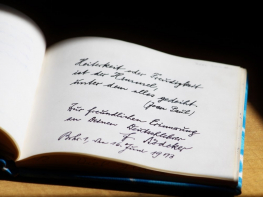 Heiterkeit oder Freudigkeit
ist der Himmel,
unter dem alles gedeiht.
(Jean Paul)
Zur freundlichen Erinnerung
an Deinen Deutschlehrer
F. Redeker
den 16. Juni 1973